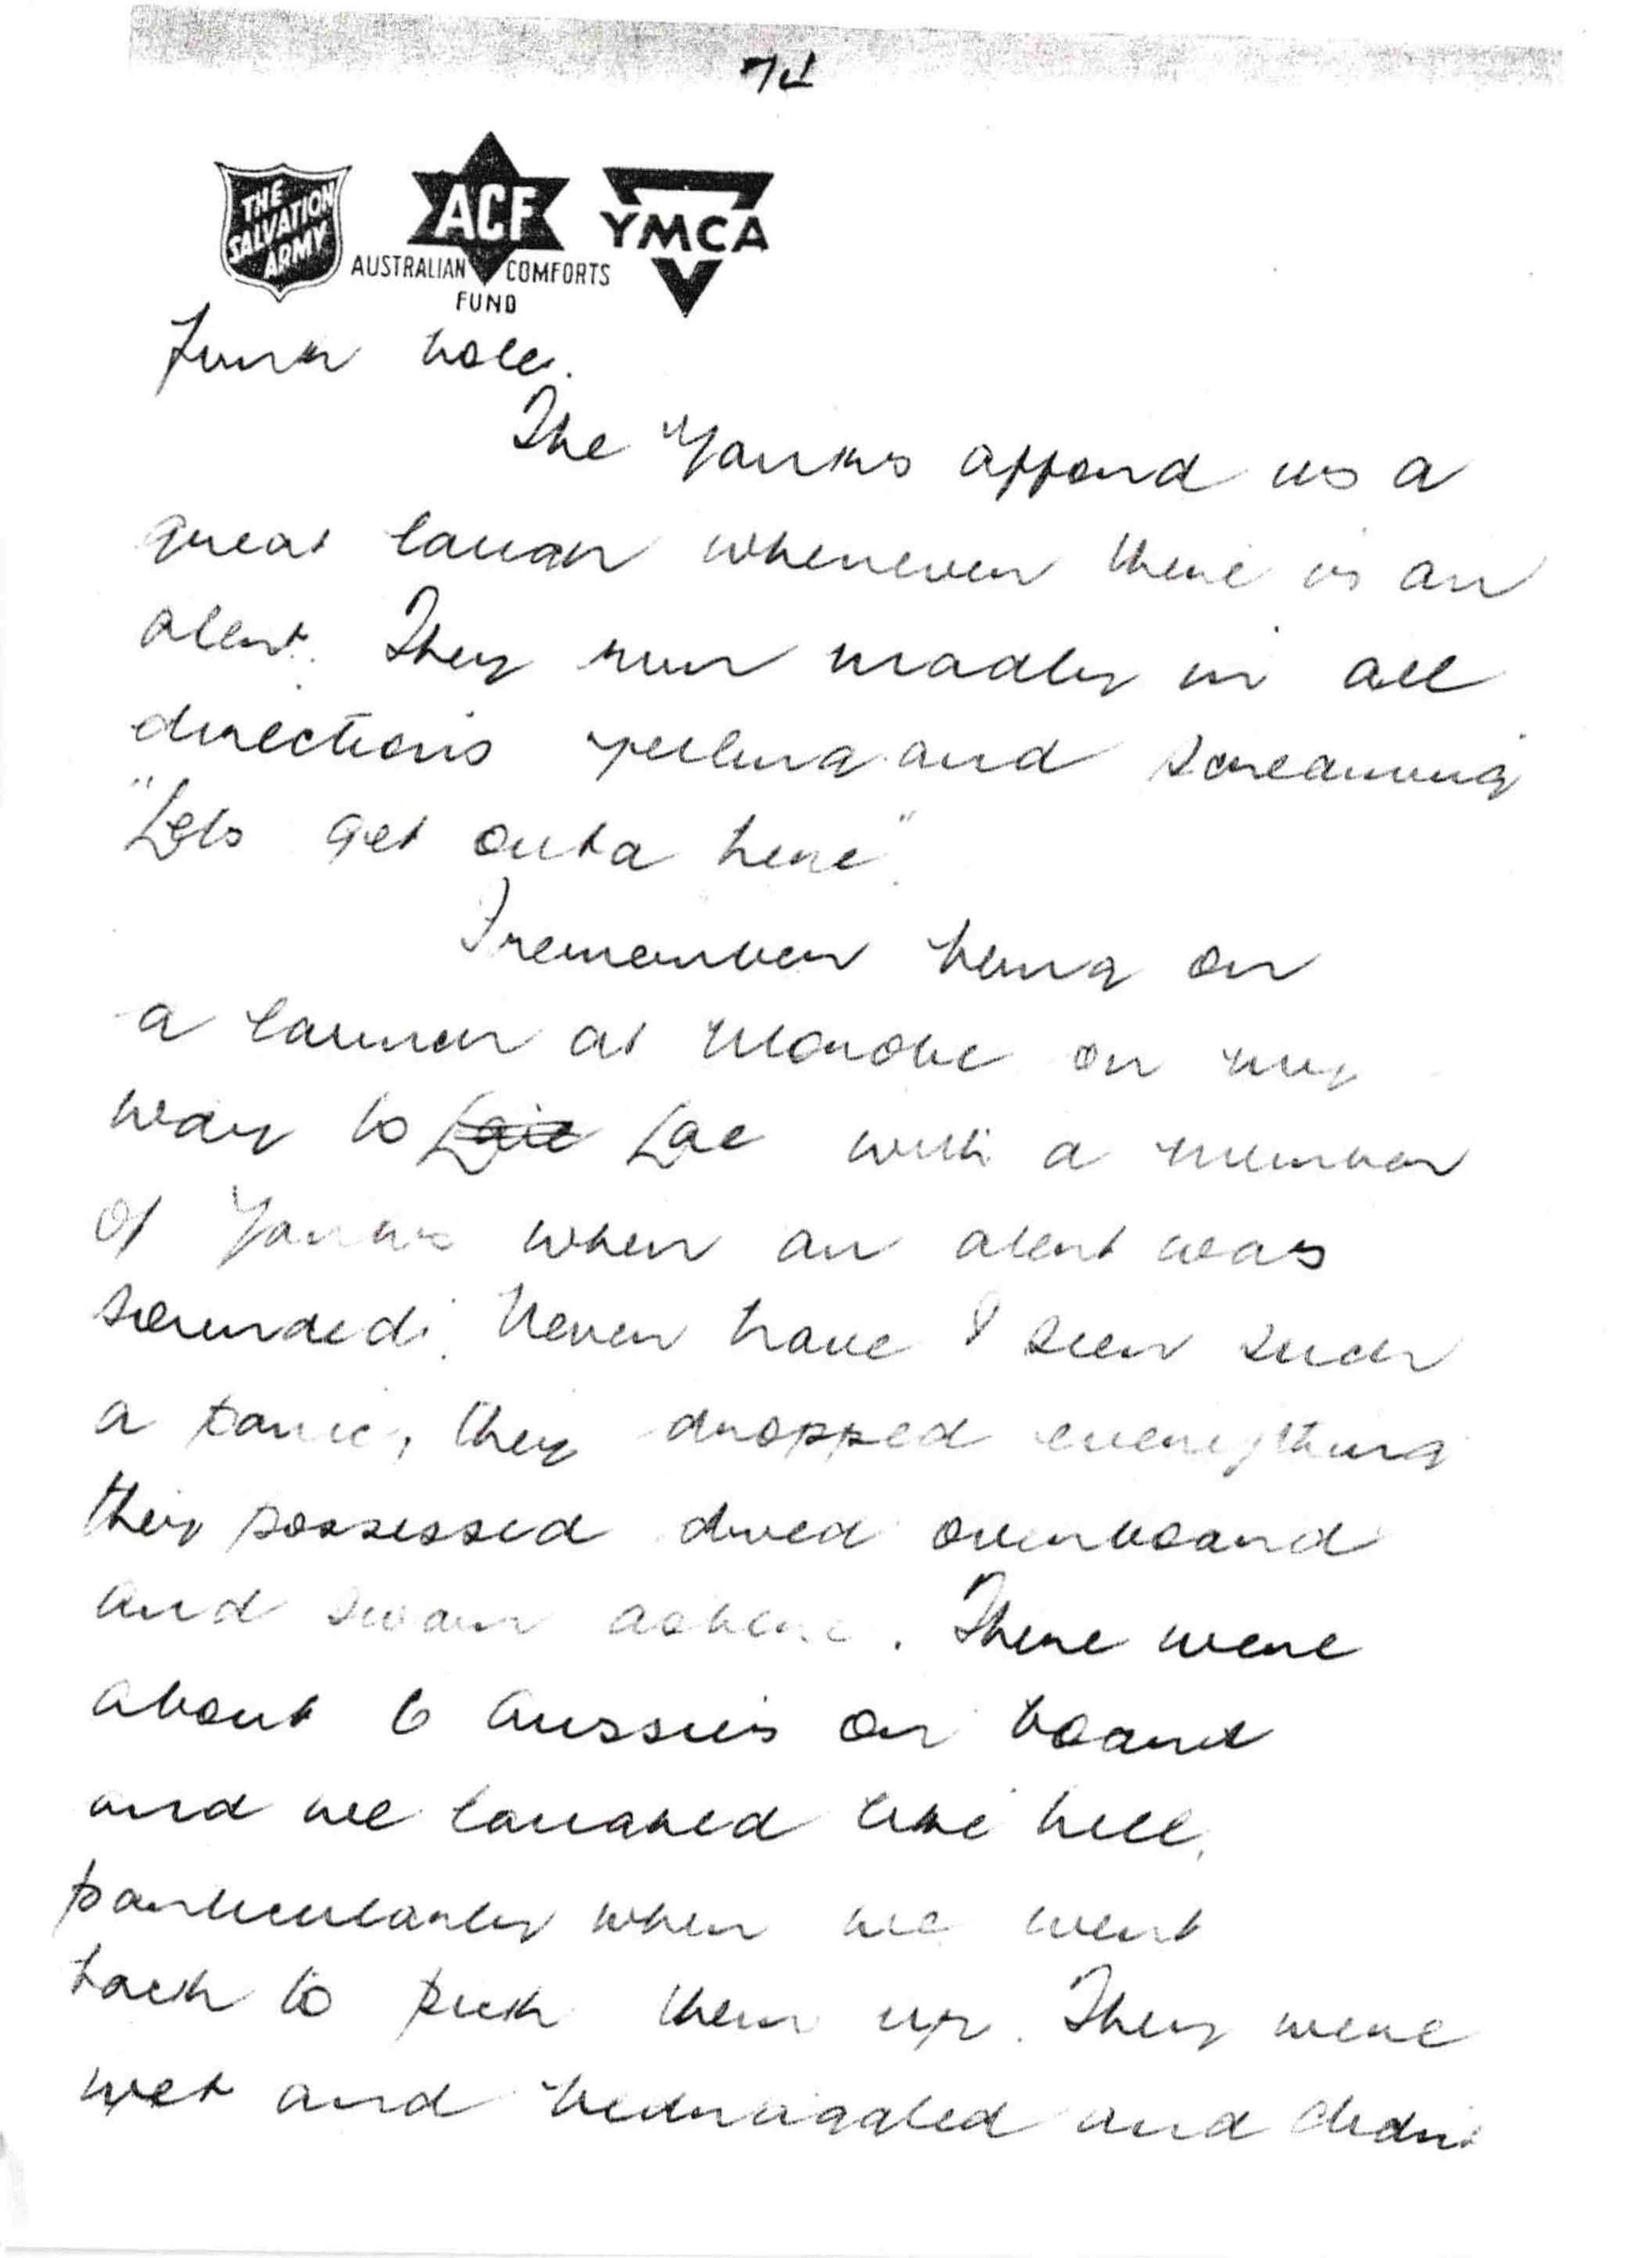 THE
SALVATION
ARMY
ACF
AUSTRALIAN COMFORTS
FUND
YMCA
Funk hole.
The Yanks afford us a
great laugh whenever there is an
alert. They run madly in all
directions yelling and screaming
"Lets get outa here".
I remember being on
a launch at Morobe on my
way to Laie Lae with a number
of Yanks when an alert was
sounded. Never have I seen such
a panic, they dropped everything
they possessed dived overboard
and swam ashore. There were
about 6 Aussies on board
and we laughed like hell,
particularly when we went
back to pick them up. They were
wet and bedraggled and didnt